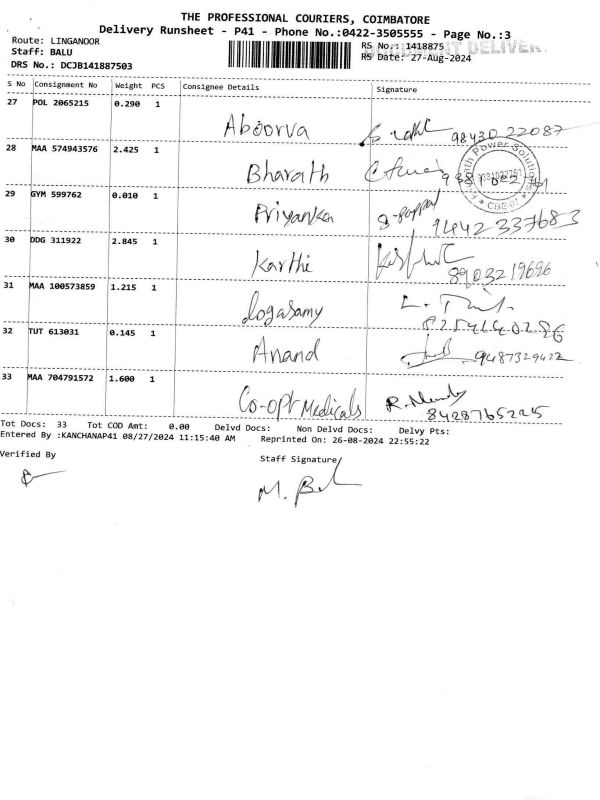 THE PROFESSIONAL COURIERS, COIMBATORE
Delivery Runsheet - P41 - Phone No.:0422-3505555 - Page No.:3
Route: LINGANOOR
Staff: BALU
DRS No.: DCJB141887503
RS No.: 1418875
RS Date: 27-Aug-2024
S No Consignment No Weight PCS Consignee Details Signature
27 POL 2065215 0.290 1 Aboorva 98430 22087
28 MAA 574943576 2.425 1 Bharath
29 GYM 599762 0.010 1 Priyanka 9442 337683
30 DDG 311922 2.845 1 Karthi 8903219696
31 MAA 100573859 1.215 1 logasamy
32 TUT 613031 0.145 1 Anand 9487329422
33 MAA 704791572 1.600 1 Co-opt Medicals
Tot Docs: 33 Tot COD Amt: 0.00 Delvd Docs: Non Delvd Docs: Delvy Pts:
Entered By :KANCHANAP41 08/27/2024 11:15:40 AM Reprinted On: 26-08-2024 22:55:22
Verified By
Staff Signature